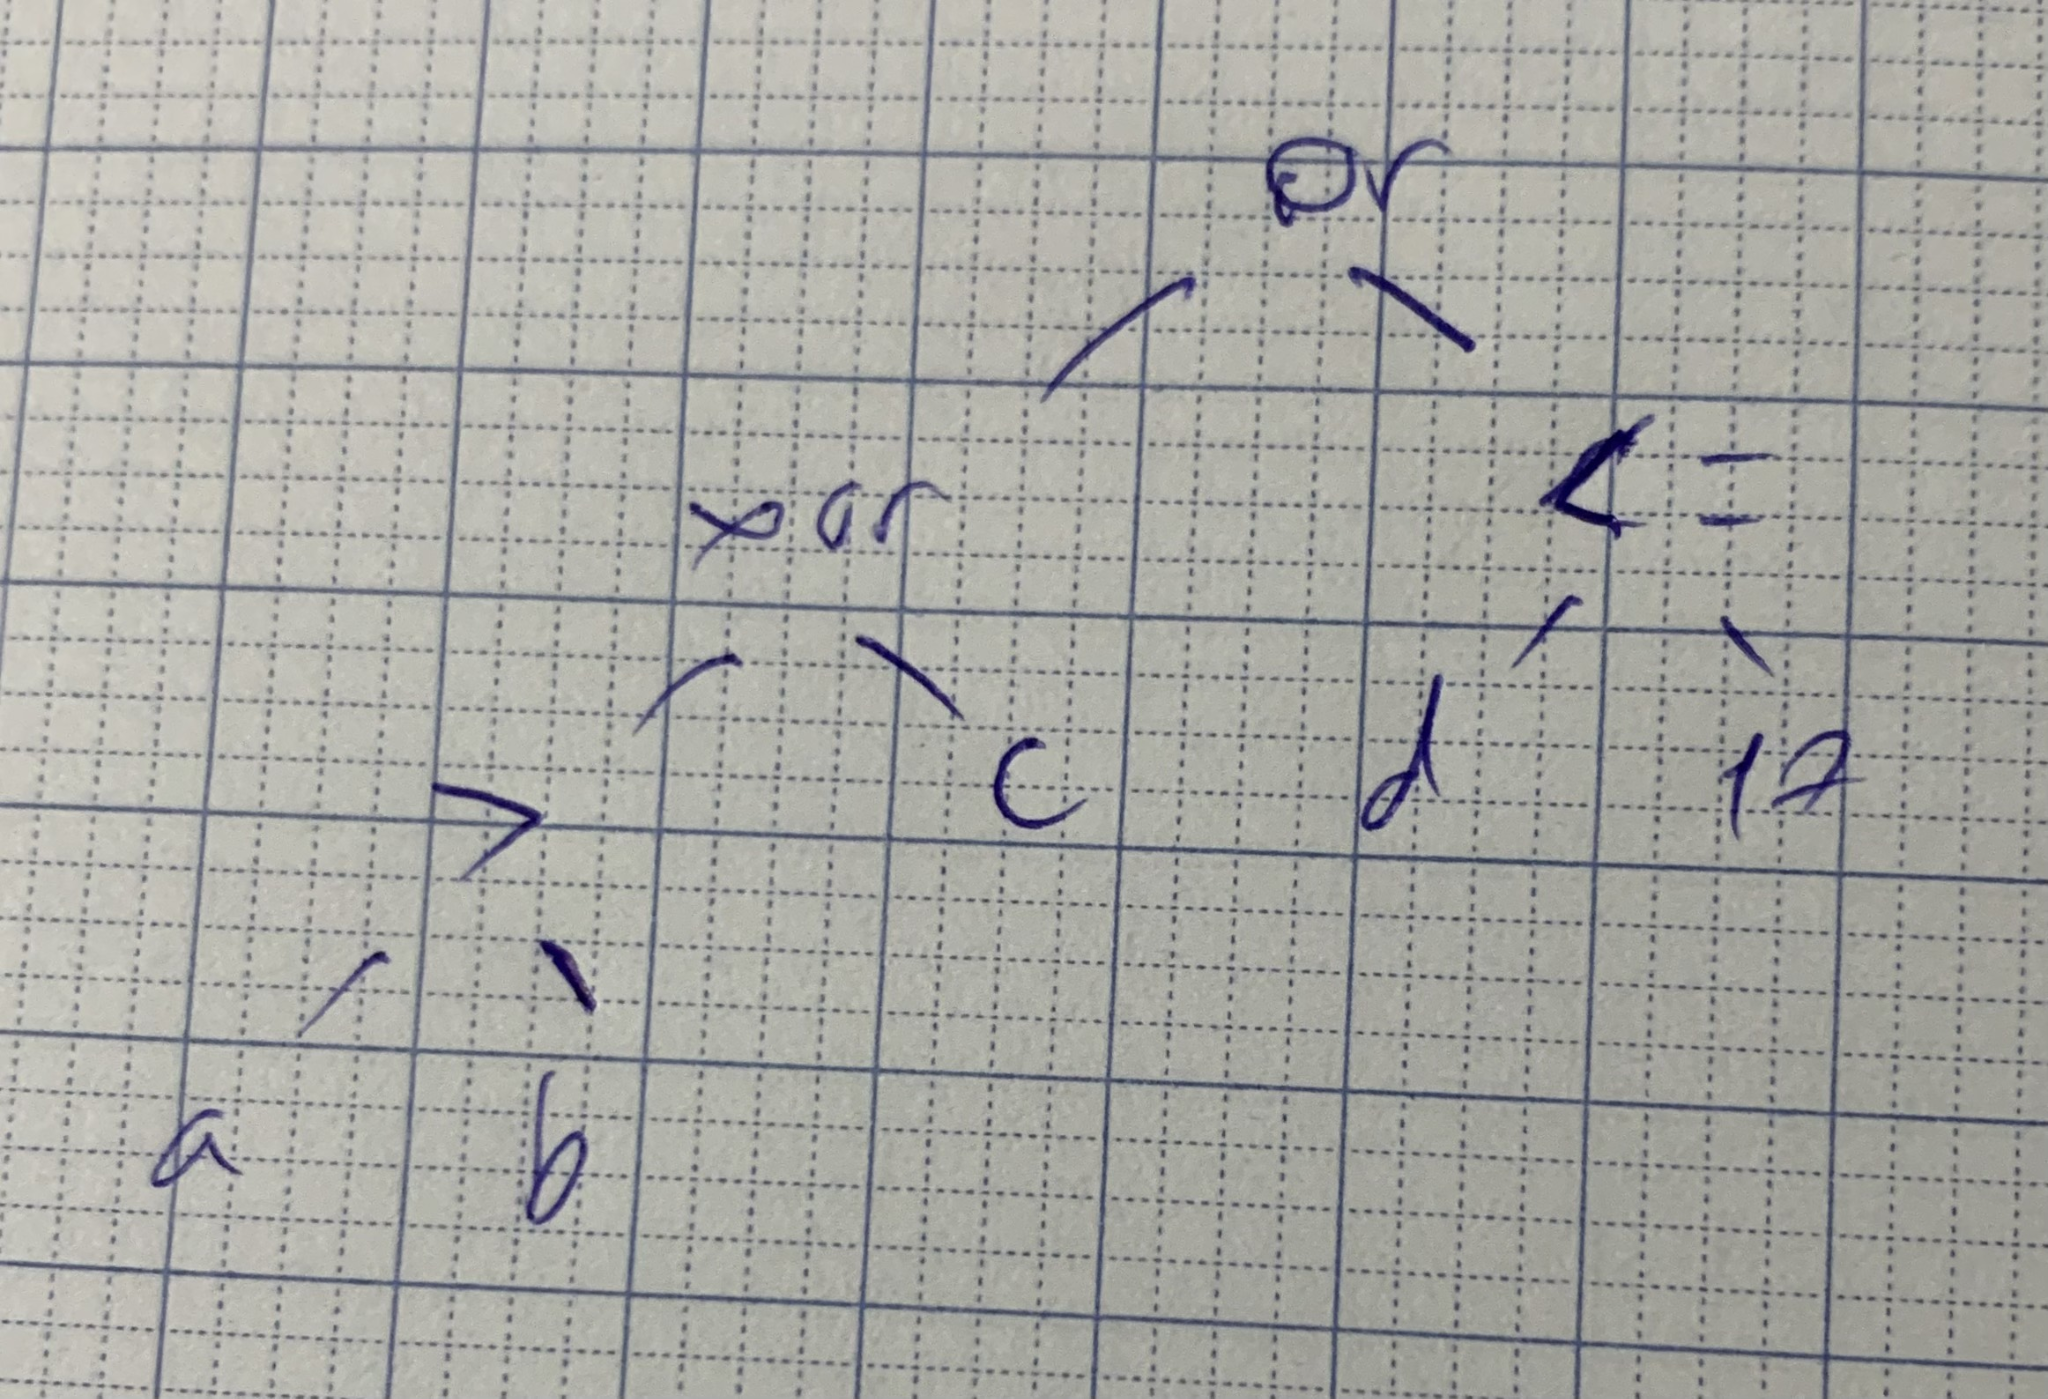 or
xor <=
> c d 17
a b